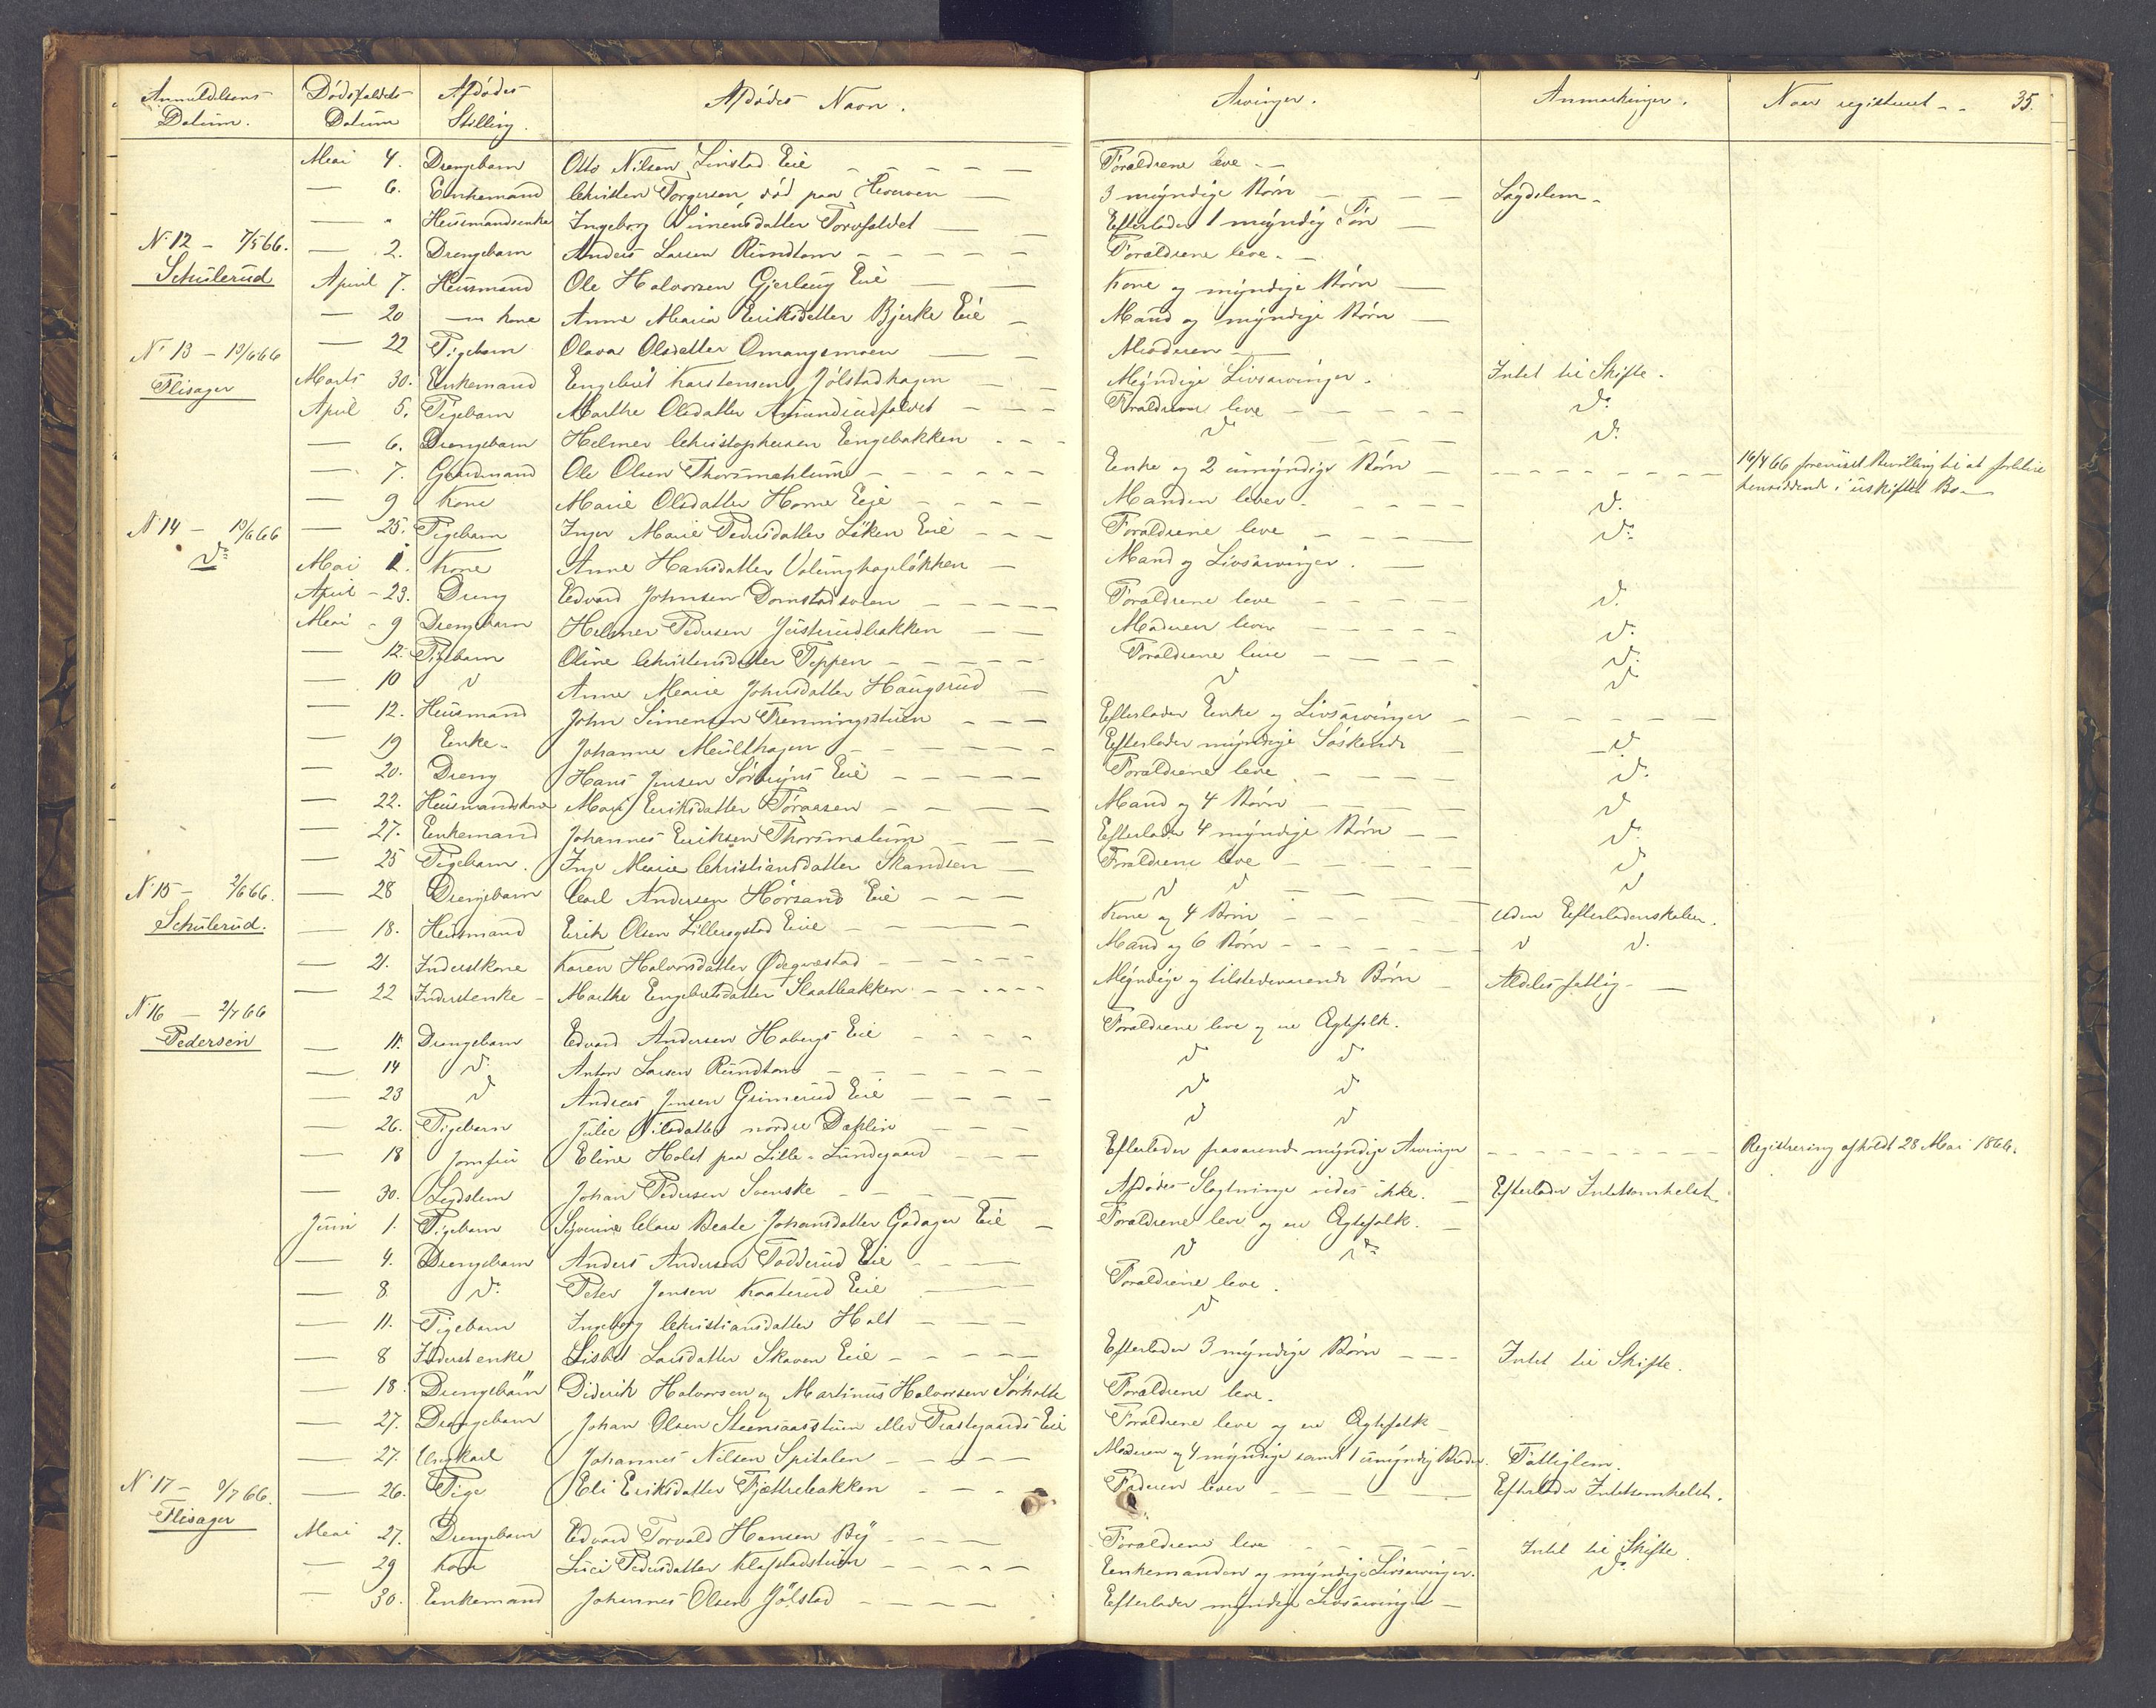 Anmeldelsens Datum. Dødsfaldets Datum Afdødes Stilling. Afdødes Navn. Arvinger. Anmærkninger. Naar registreret - - 35.
Mai 4. Drengebarn Otto Nilsen Linstad Eie - - - - Forældrene leve - -
— 6. Enkemand Christen Torgersen, død paa — 3 myndige Børn - - - Lægdslem -
— " Huusmandsenke Ingeborg Simensdatter Torvfaldet — Efterlader 1 myndig Søn —
N. 12 - 7/5 66. — 2. Drengebarn Anders Larsen Rundtom - - - - - Forældrene leve. -
Schulerud April 7. Huusmand Ole Halvorsen Gjerlaug Eie — Kone og myndige Børn —
— 20 — Kone Anne Maria Eriksdatter Bjerke Eie - Mand og myndige Børn —
N. 13 - 13/6 66 — 22 Pigebarn Olava Olsdatter Omangsmoen — Moderen —
Flisager Marts 30. Enkemand Engebret Karstensen Jølstadhagen - Myndige Livsarvinger. Intet til Skifte.
April 5. Pigebarn Marthe Olsdatter Amundrudfalvet - - - Forældrene leve - - - - - do.
— 6. Drengebarn Helmer Christophersen Engebakken - - - do - - - do.
— 7. Gaardmand Ole Olsen Thorsmæhlum - - - - - Enke og 2 umyndige Børn - - - - - - 14/4 66 foreviist Bevilling til at forblive
hensiddende i uskiftet Bo -
— 9 Kone Marie Olsdatter Horne Eie - - - - Manden lever - - - - - do.
N. 14 - 13/6 66 — 25. Pigebarn Inger Marie Pedersdatter Løken Eie - - - Forældrene leve - - - - do.
do Mai 1. Kone Anne Hansdatter Volunghageløkken - Mand og Livsarvinger. —
April - 23. Dreng Edvard Johnsen Domstadsolen - - - - Forældrene leve - - - - do.
Mai - 9 Drengebarn Helmer Pedersen Justerudbakken - - Moderen lever - - - - do.
— 12. Pigebarn Oline Christensdatter Teppen - - - - - Forældrene leve - - - - do.
— 10 do Anne Marie Johnsdatter Haugsrud - do do
— 12. Huusmand John Simensen Trenningsstuen - - - Efterlader Enke og Livsarvinger - - - - - -
— 19 Enke - Johanne Meulthagen - - - - - Efterlader myndige Søskende - do
— 20. Dreng Hans Jensen Sørbyns Eie - - - - - Forældrene leve - - - - do.
— 22. Huusmandskone Mari Eriksdatter Toraasen - - - - Mand og 4 Børn - - - - do
— 27. Enkemand Johannes Eriksen Thorsmælum - - - Efterlader 4 myndige Børn - - do.
— 25 Pigebarn. Inge Marie Christiansdatter Skandsen — Forældrene leve - - - - do
N. 15 - 2/6 66. — 28 Drengebarn Carl Andersen Horsand Eie - - - do do - - - do
Schulerud. — 18. Huusmand Erik Olsen Lillerogstad Eie - - - - Kone og 4 Børn - - - - Uden Efterladenskaber.
— 21. Inderstkone Karen Halvorsdatter Ødegvestad - - - - - Mand og 6 Børn - - - - - do do.
— 22 Inderstenke - Marthe Engebretsdatter Slaatbakken - - - - - Myndige og tilstedeværende Børn - Aldeles fattig - —
N. 16 - 2/7 66
Pedersen — 11. Drengebarn Edvard Andersen Habergs Eie - - - - Forældrene leve og ere Ægtefolk.
— 14 do. Anton Larsen Rundtom - - - - - do do
— 23 do Andreas Jensen Grimerud Eie - - - - do do
— 26. Pigebarn Julie Nilsdatter nordre Dahlin - - - do do
— 18 Jomfru Eline Holst paa Lille-Lundgaard - - - Efterlader fraværende myndige Arvinger - - - - - - - Registrering afholdt 28 Mai 1866.
— 30. Lægdslem Johan Pedersen Svenske - - - - Afdødes Slægtninge vides ikke. - Efterlader Intetsomhelst.
Juni 1. Pigebarn Severine Clara Beate Johansdatter Gadager Eie - Forældrene leve og ere Ægtefolk. -
— 4. Drengebarn Anders Andersen Fodderud Eie - - - do do
— 8 do. Peter Jensen Kaaterud Eie — Forældrene leve.
— 11. Pigebarn Ingeborg Christiansdatter Holt - - - do
— 8 Inderstenke Lisbet Larsdatter Skaven Eie - - - - - Efterlader 3 myndige Børn - - - Intet til Skifte.
— 18. Drengebørn Diderik Halvorsen og Martinus Halvorsen Sørholte Forældrene leve.
— 27. Drengebarn Johan Olsen Steensaasstuen eller Præstegaards Eie Forældrene leve og ere Ægtefolk -
— 27. Ungkarl Johannes Nilsen Spitalen - - - - - Moderen og 4 myndige samt 1 umyndig Broder. Fattiglem.
N. 17 - 9/7 66. — 26. Pige Eli Eriksdatter Fjøttrebakken - - - - Faderen lever - - - - - Efterlader Intetsomhelst.
Flisager Mai 27. Drengebarn Edvard Torvald Hansen By - - - - Forældrene leve - - - - Intet til Skifte.
— 29 Kone Lisci Pedersdatter Klafstadstuen - - - - Enkemanden og myndige Livsarvinger. do
— 30. Enkemand Johannes Olsen Jølstad - - - - Efterlader myndige Livsarvinger -